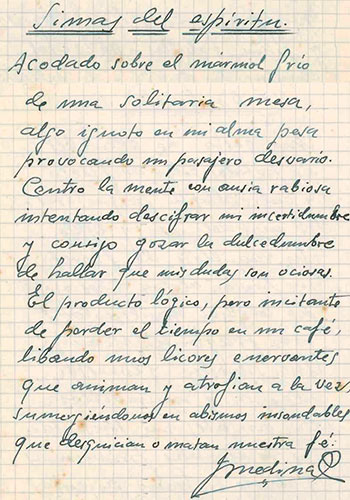 Simas del espíritu.
Acodado sobre el mármol frío
de una solitaria mesa,
algo ignoto en mi alma pesa
provocando un pasajero desvarío.
Centro la mente con ansia rabiosa
intentando descifrar mi incertidumbre
y consigo gozar la dulcedumbre
de hallar que mis dudas son ociosas.
El producto lógico, pero incitante
de perder el tiempo en un café,
libando unos licores enervantes
que animan y atrofian a la vez,
sumergiéndonos en abismos insondables
que desquician o matan nuestra fé.
JMedina